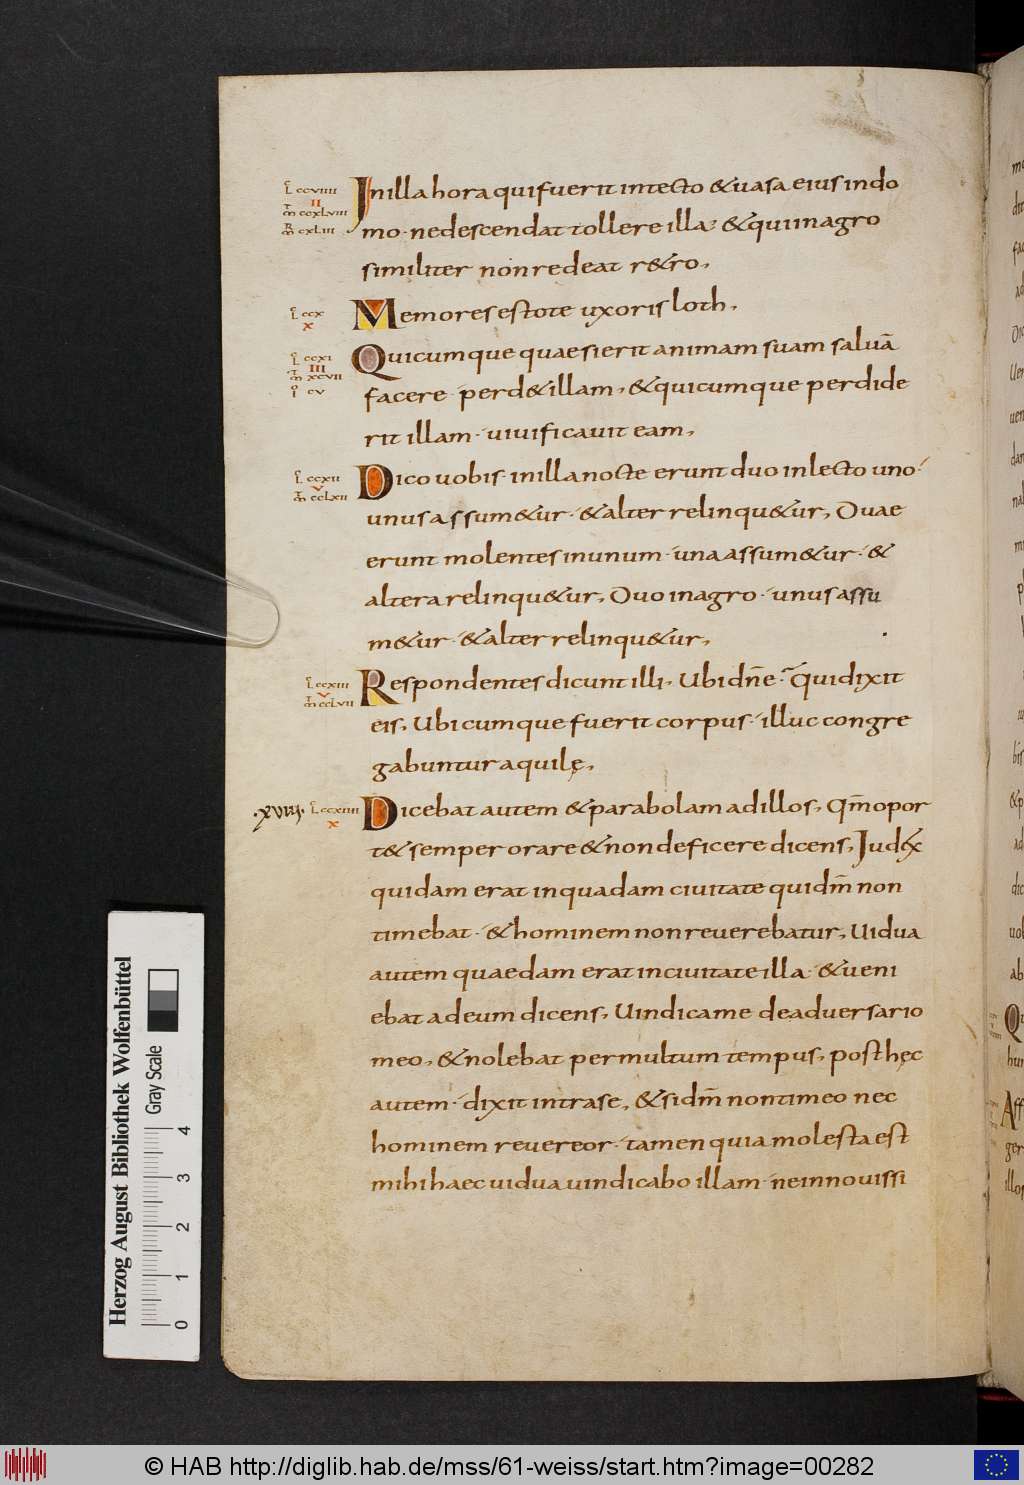 L ccviiii
II
M ccxlviii
M cxliii
In illa hora qui fuerit intecto & uasa eius in do
mo· ne descendat tollere illa· & qui in agro
similiter non redeat r&ro,
L ccx
x
Memores estote uxoris loth,
L ccxi
III
M xcvii
I cv
Quicumque quaesierit animam suam saluā
facere· perd& illam, & quicumque perdide
rit illam· uiuificauit eam,
L ccxii
v
M cclxii
Dico uobis· in illa nocte erunt duo in lecto uno·
unus assum&ur· & alter relinqu&ur, Duae
erunt molentes in unum· una assum&ur· &
altera relinqu&ur, Duo in agro· unus assu
m&ur· & alter relinqu&ur,
L ccxiii
v
M cclvii
Respondentes dicunt illi, Ubi dn̄e· Qui dixit
eis, Ubicumque fuerit corpus· illuc congre
gabuntur aquilę,
·xviii· L ccxiiii
x
Dicebat autem & parabolam ad illos, Qm̄ opor
t& semper orare & non deficere dicens, Iudex
quidam erat in quadam ciuitate qui dm̄ non
timebat· & hominem non reuerebatur, Uidua
autem quaedam erat in ciuitate illa· & ueni
ebat ad eum dicens, Uindica me de aduersario
meo, & nolebat per multum tempus, post hęc
autem· dixit intra se, & si dm̄ non timeo nec
hominem reuereor· tamen quia molesta est
mihi haec uidua uindicabo illam· ne in nouissi
Herzog August Bibliothek Wolfenbüttel
Gray Scale
0 1 2 3 4
© HAB http://diglib.hab.de/mss/61-weiss/start.htm?image=00282